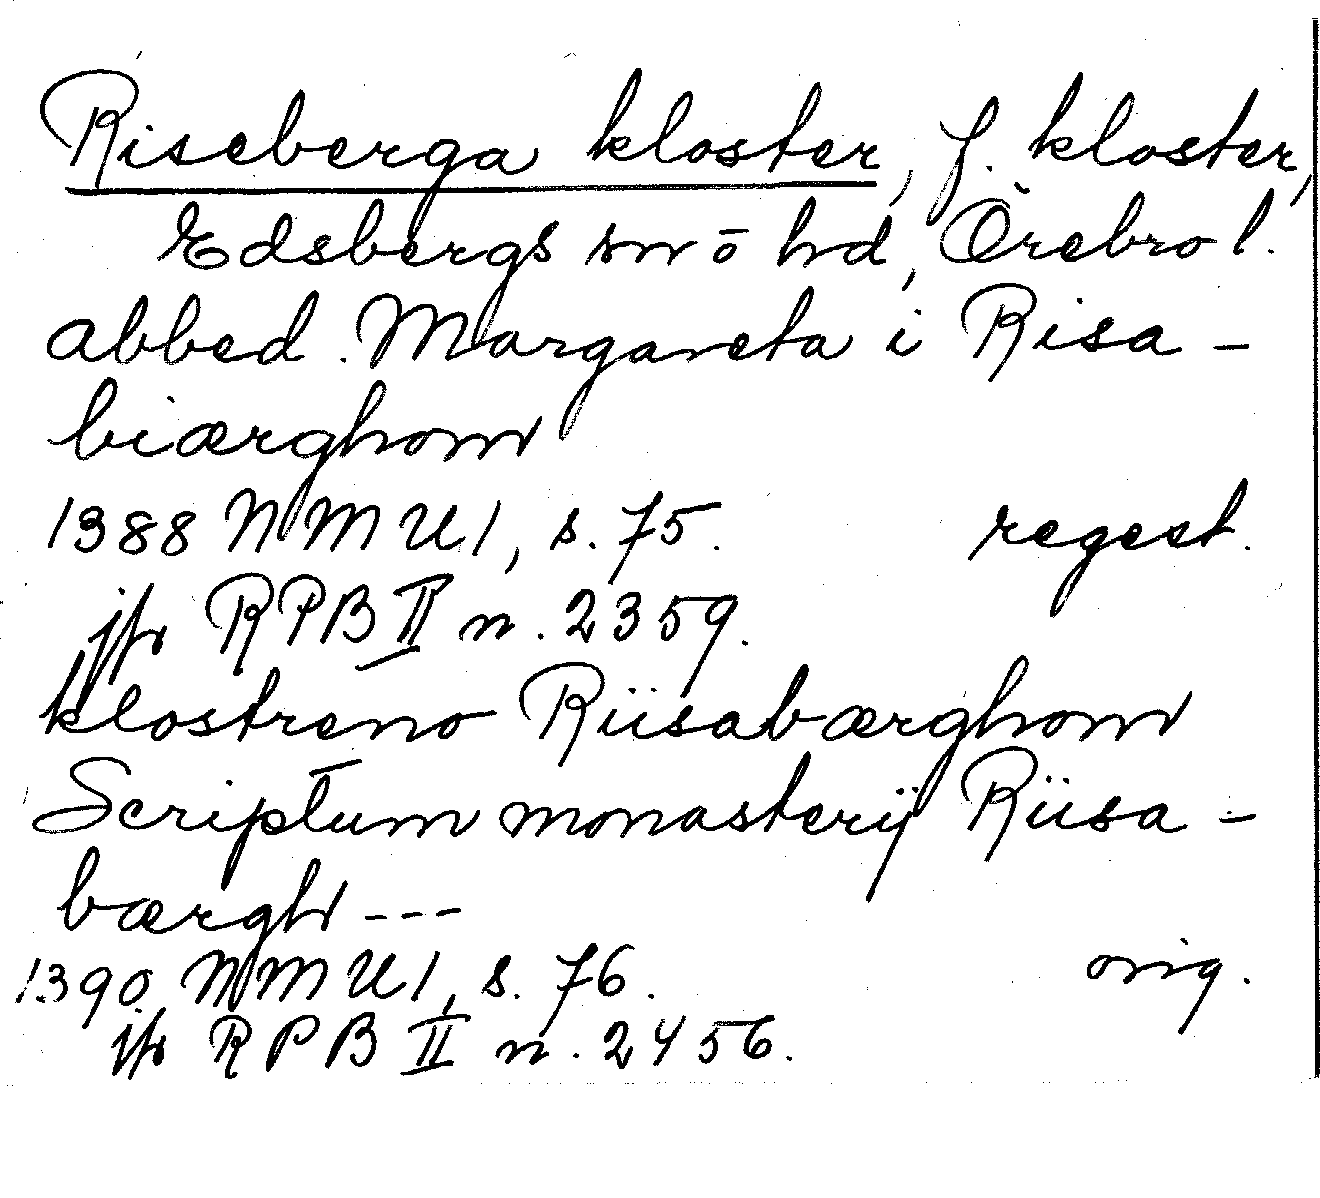 Riseberga kloster, f. kloster,
Edsbergs sn ō hd, Örebro l.
abbed. Margareta i Risa-
biærghom
1388 NMU1, s. 75. regest.
jfr RPB II n. 2359.
klostreno Riisabærghom
Scriptum monasterij Riisa-
bærgh ---
1390 NMU1, s. 76. orig.
jfr RPB II n. 2456.